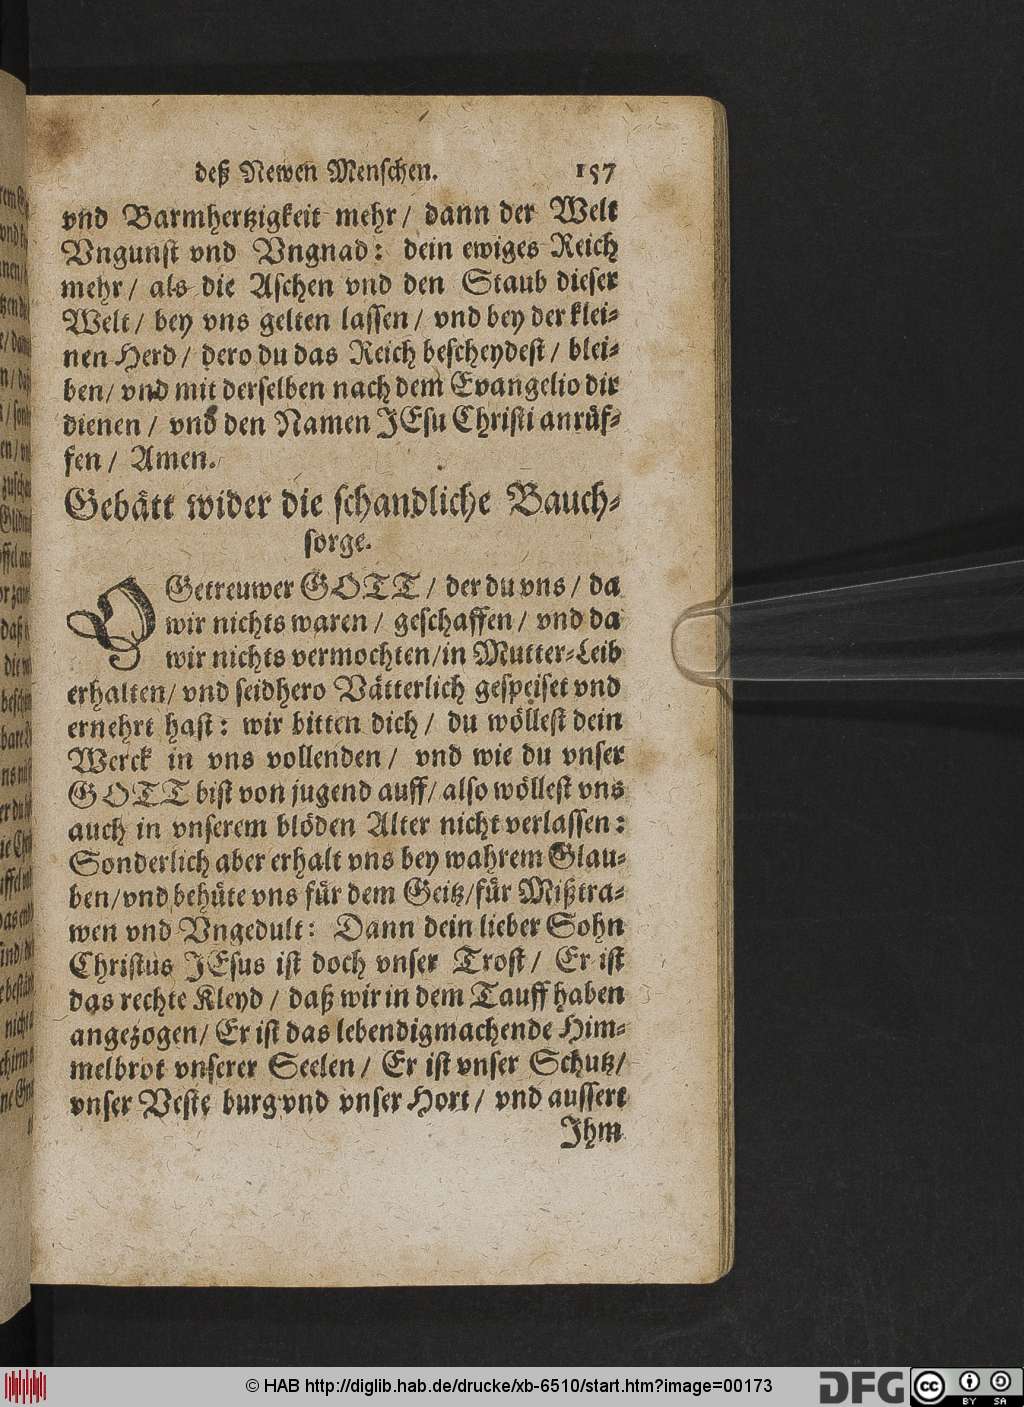 deß Newen Menschen. 157
vnd Barmhertzigkeit mehr / dann der Welt
Vngunst vnd Vngnad: dein ewiges Reich
mehr / als die Aschen vnd den Staub dieser
Welt / bey vns gelten lassen / vnd bey der klei-
nen Herd / dero du das Reich bescheydest / blei-
ben / vnd mit derselben nach dem Evangelio dir
dienen / vnd den Namen JEsu Christi anrüf-
fen / Amen.
Gebätt wider die schandliche Bauch-
sorge.
O Getreuwer GOTT / der du vns / da
wir nichts waren / geschaffen / vnd da
wir nichts vermochten / in Mutter-Leib
erhalten / vnd seidhero Vätterlich gespeiset vnd
ernehrt hast: wir bitten dich / du wöllest dein
Werck in vns vollenden / vnd wie du vnser
GOTT bist von jugend auff / also wöllest vns
auch in vnserem blöden Alter nicht verlassen:
Sonderlich aber erhalt vns bey wahrem Glau-
ben / vnd behüte vns für dem Geitz / für Mißtra-
wen vnd Vngedult: Dann dein lieber Sohn
Christus JEsus ist doch vnser Trost / Er ist
das rechte Kleyd / daß wir in dem Tauff haben
angezogen / Er ist das lebendigmachende Him-
melbrot vnserer Seelen / Er ist vnser Schutz /
vnser Veste burg vnd vnser Hort / vnd aussert
Jhm
© HAB http://diglib.hab.de/drucke/xb-6510/start.htm?image=00173
DFG
cc BY SA